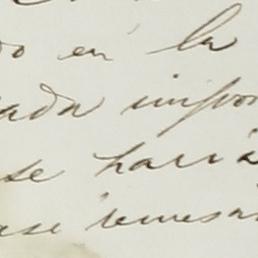 do en la
ada impor
se haria
ase remesa